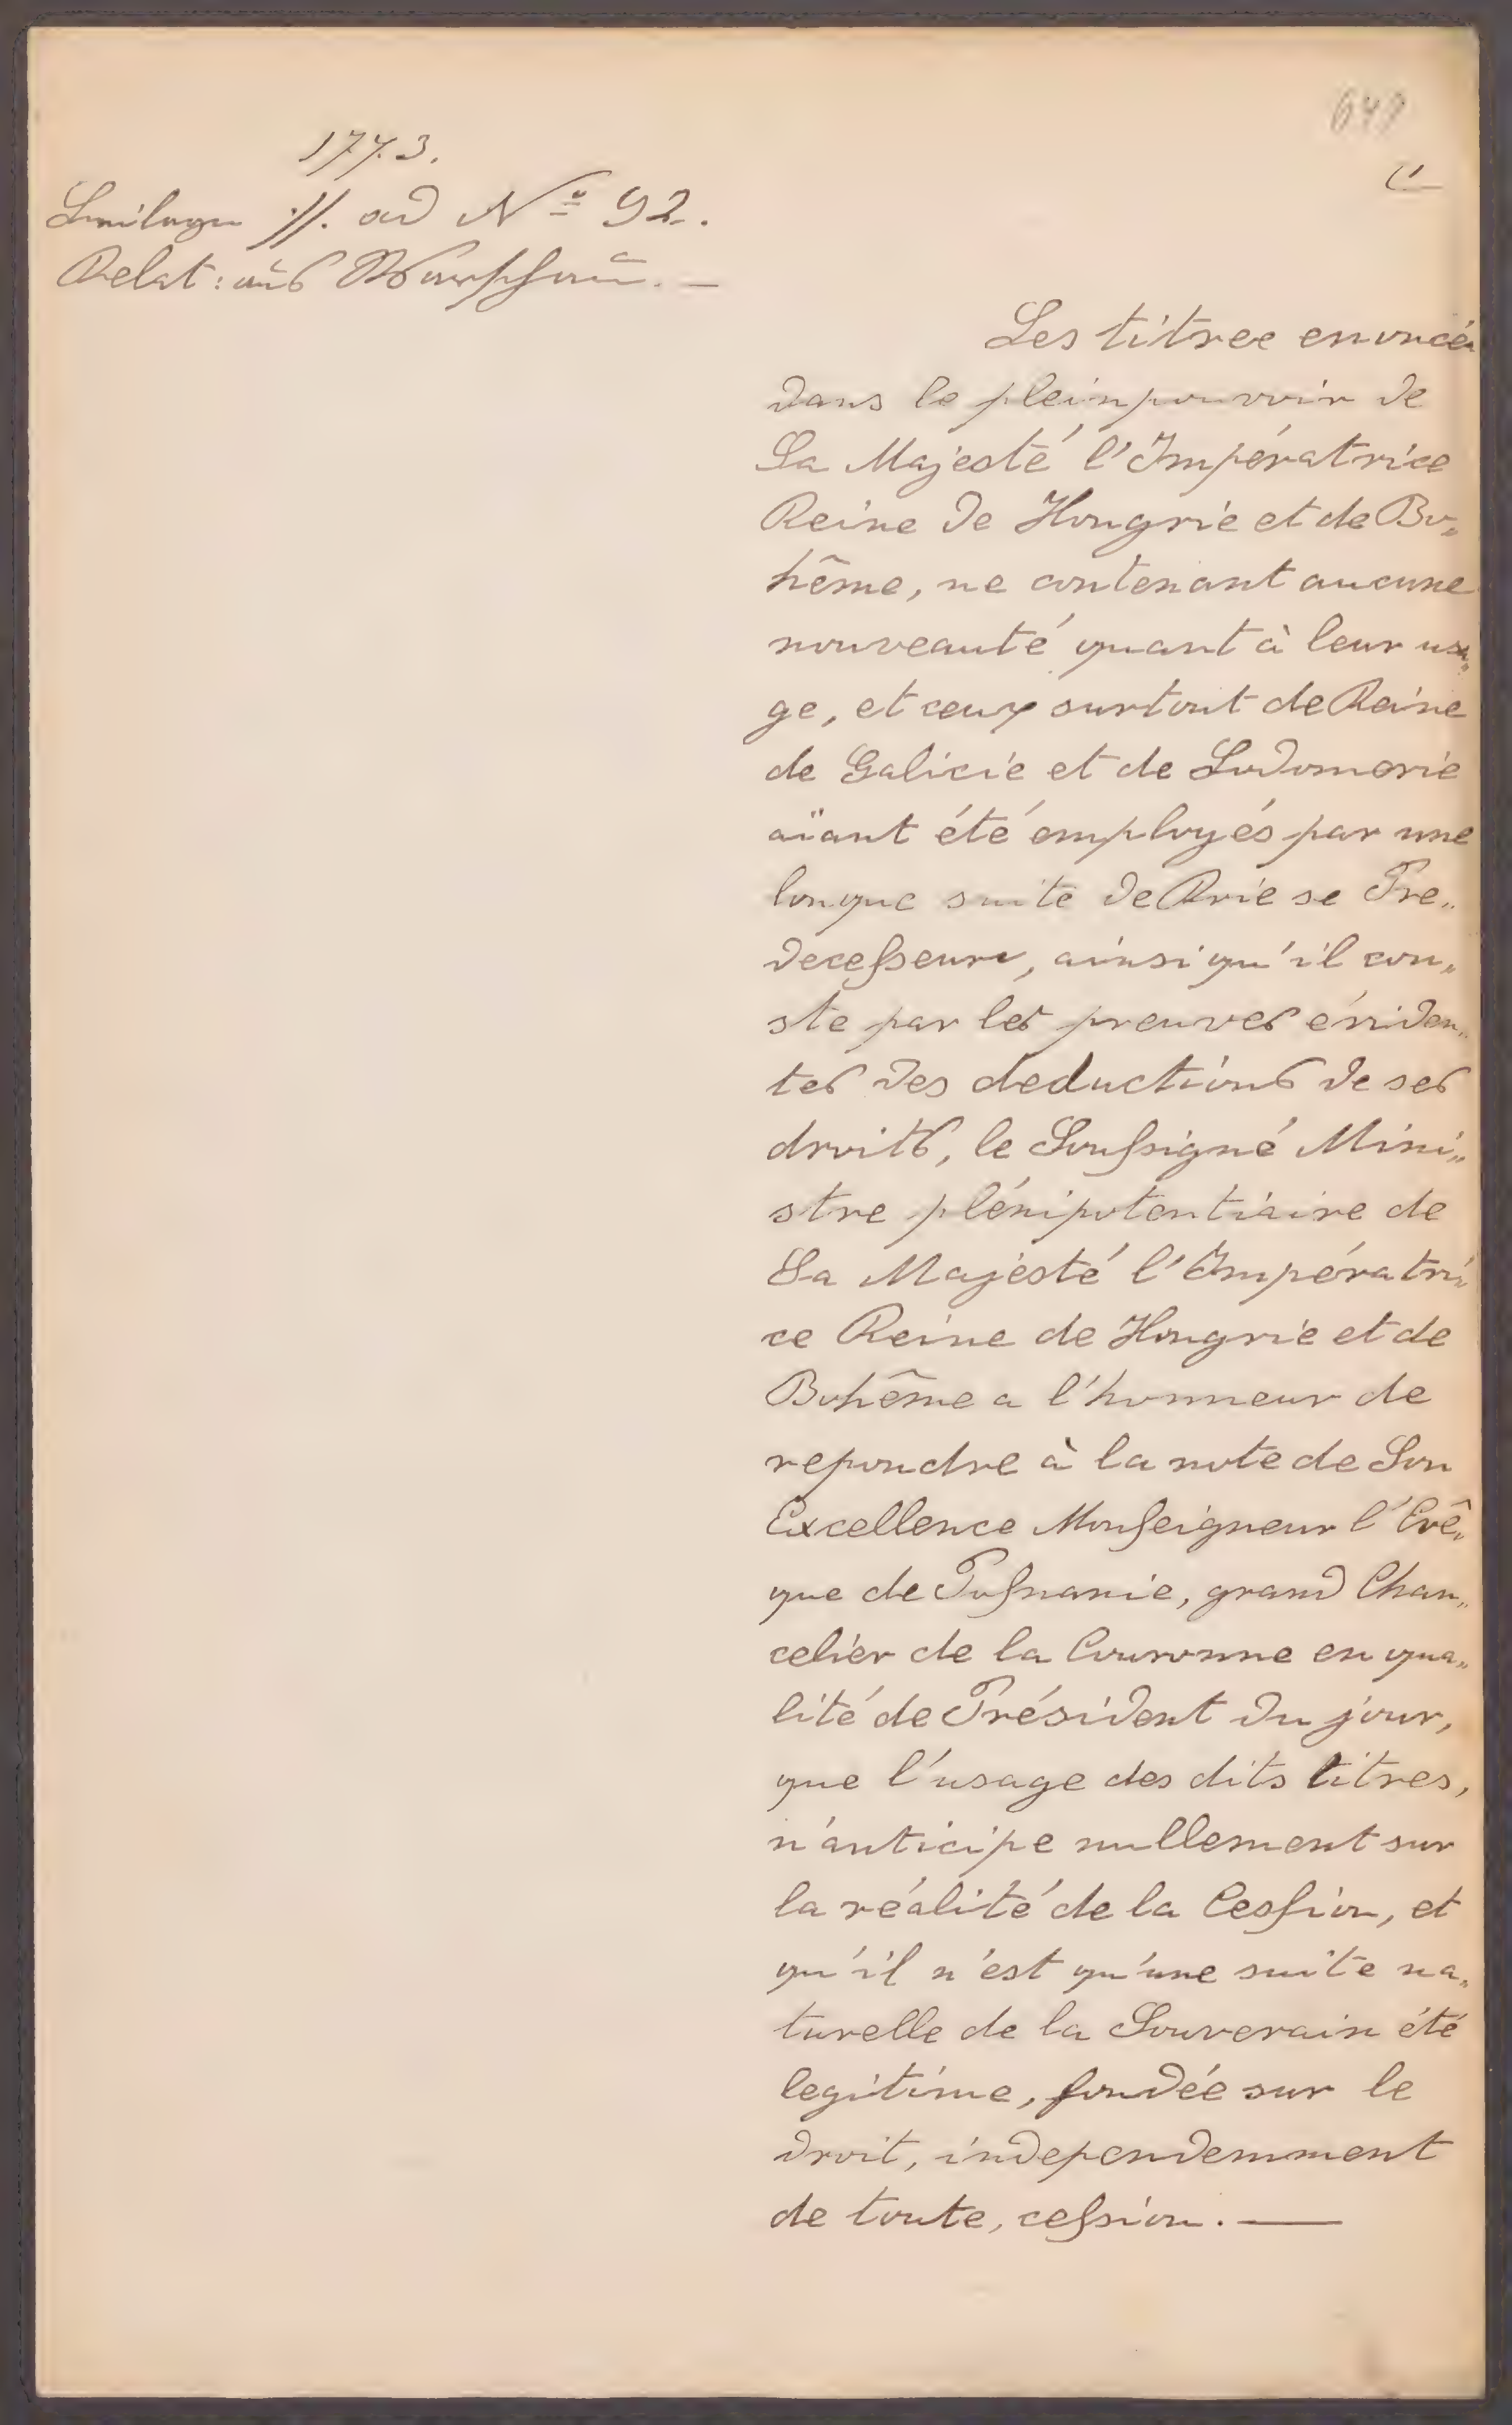 649
1773.
Beilage //. ad No 92.
Relat: aus Warschau. —
Les titres enoncés
dans le pleinpouvoir de
Sa Majesté l'Impératrice
Reine de Hongrie et de Bo„
hême, ne contenant aucune
nouveauté quant à leur usa„
ge, et ceux surtout de Reine
de Galicie et de Lodomerie
aïant été employés par une
longue suite de Rois se Pre„
decesseurs, ainsi qu'il con„
ste par les preuves éviden„
tes des deductions de ses
droits, le Soussigné Mini„
stre plénipotentiaire de
Sa Majésté l'Impératri„
ce Reine de Hongrie et de
Bohême a l'honneur de
repondre à la note de Son
Excellence Monseigneur l'Evê„
que de Posnanie, grand Chan„
celier de la Couronne en qua„
lité de Président du jour,
que l'usage des dits titres,
n'anticipe nullement sur
la réalité de la Cession, et
qu'il n'est qu'une suite na„
turelle de la Souverain été
legitime, fondée sur le
droit, independemment
de toute, cession. —